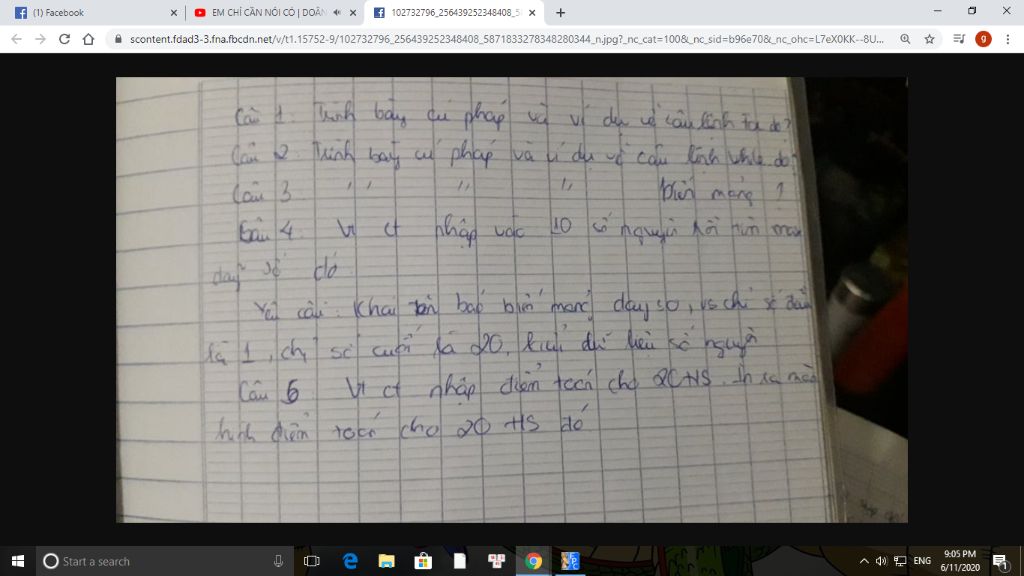 (1) Facebook
EM CHỈ CẦN NÓI CÓ | DOÃN
102732796_256439252348408_58
scontent.fdad3-3.fna.fbcdn.net/v/t1.15752-9/102732796_256439252348408_5871833278348280344_n.jpg?_nc_cat=100&_nc_sid=b96e70&_nc_ohc=L7eX0KK--8U...
g
Câu 1. Trình bày cú pháp và ví dụ về câu lệnh for do?
Câu 2. Trình bày cú pháp và ví dụ về câu lệnh while do?
Câu 3 '' '' '' biến mảng ?
Câu 4. Vt ct nhập vào 10 số nguyên rồi
dãy số đó
Yêu cầu: Khai báo biến mảng dayso, vs chỉ số đầu
là 1, chỉ số cuối là 20, kiểu dữ liệu số nguyên
Câu 5 Vt ct nhập điểm toán cho 20 HS. In ra màn
hình điểm toán cho 20 HS đó
Start a search
ENG
9:05 PM
6/11/2020
1